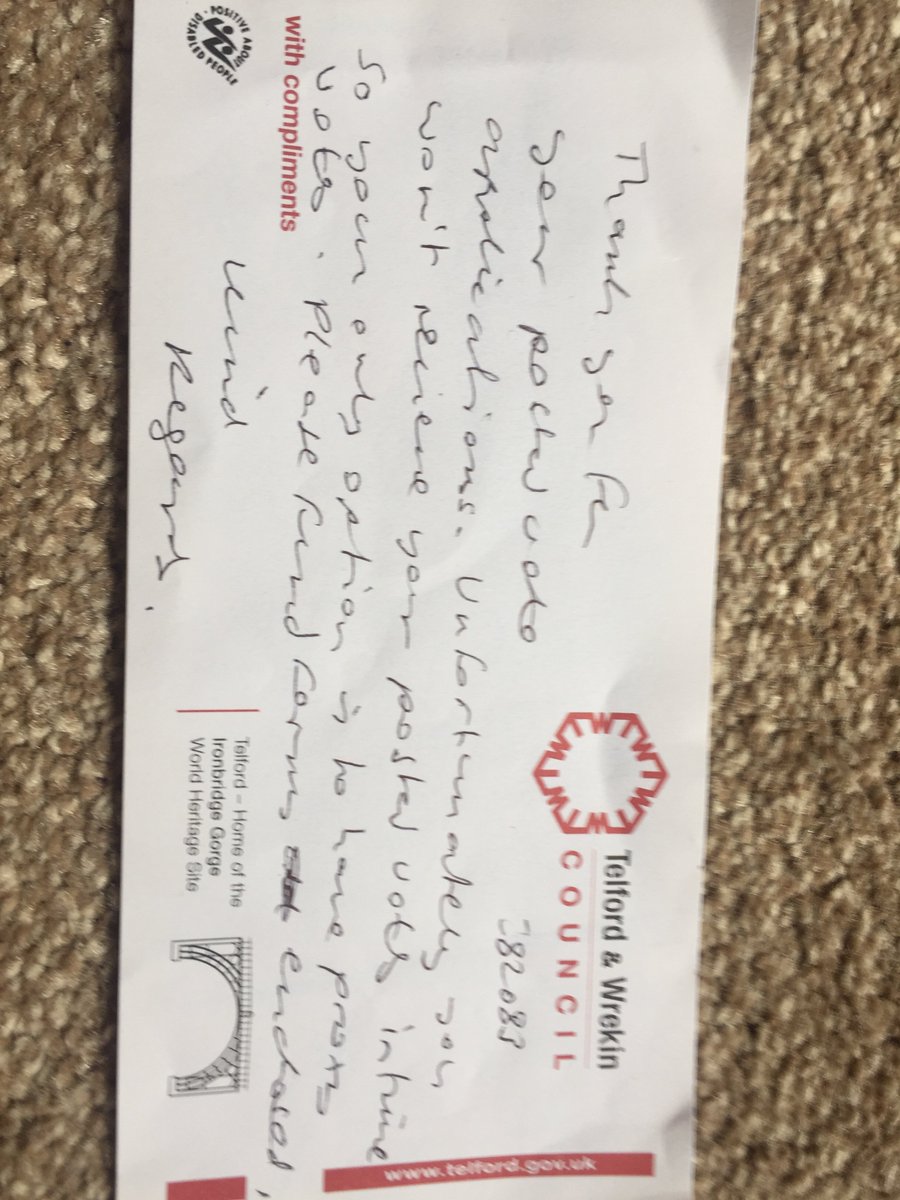 Telford & Wrekin
COUNCIL
Thank you for
your postal vote
382083
applications. Unfortunately you
won't recieve your postal vote in time
So your only option is to have proxy
vote. Please find forms enclosed,
Kind
Regards.
with compliments
POSITIVE ABOUT DISABLED PEOPLE
Telford – Home of the
Ironbridge Gorge
World Heritage Site
www.telford.gov.uk